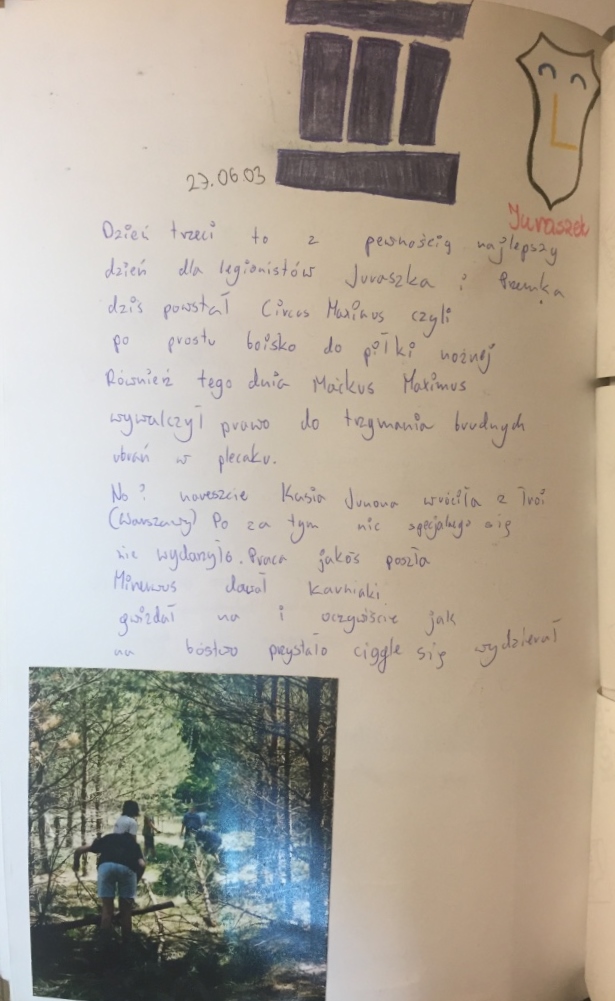 27.06.03
Juraszek
Dzień trzeci to z pewnością najlepszy
dzień dla legionistów Juraszka i Przemka
dziś powstał Circus Maximus czyli
po prostu boisko do piłki nożnej
Również tego dnia Markus Maximus
wywalczył prawo do trzymania brudnych
ubrań w plecaku.
No i nareszcie Kasia Junona wróciła z Troi
(Warszawy) Po za tym nic specjalnego się
nie wydarzyło. Praca jakoś poszła
Minerwus dawał karniaki
gwizdał na i oczywiście jak
na bóstwo przystało ciągle się wydzierał